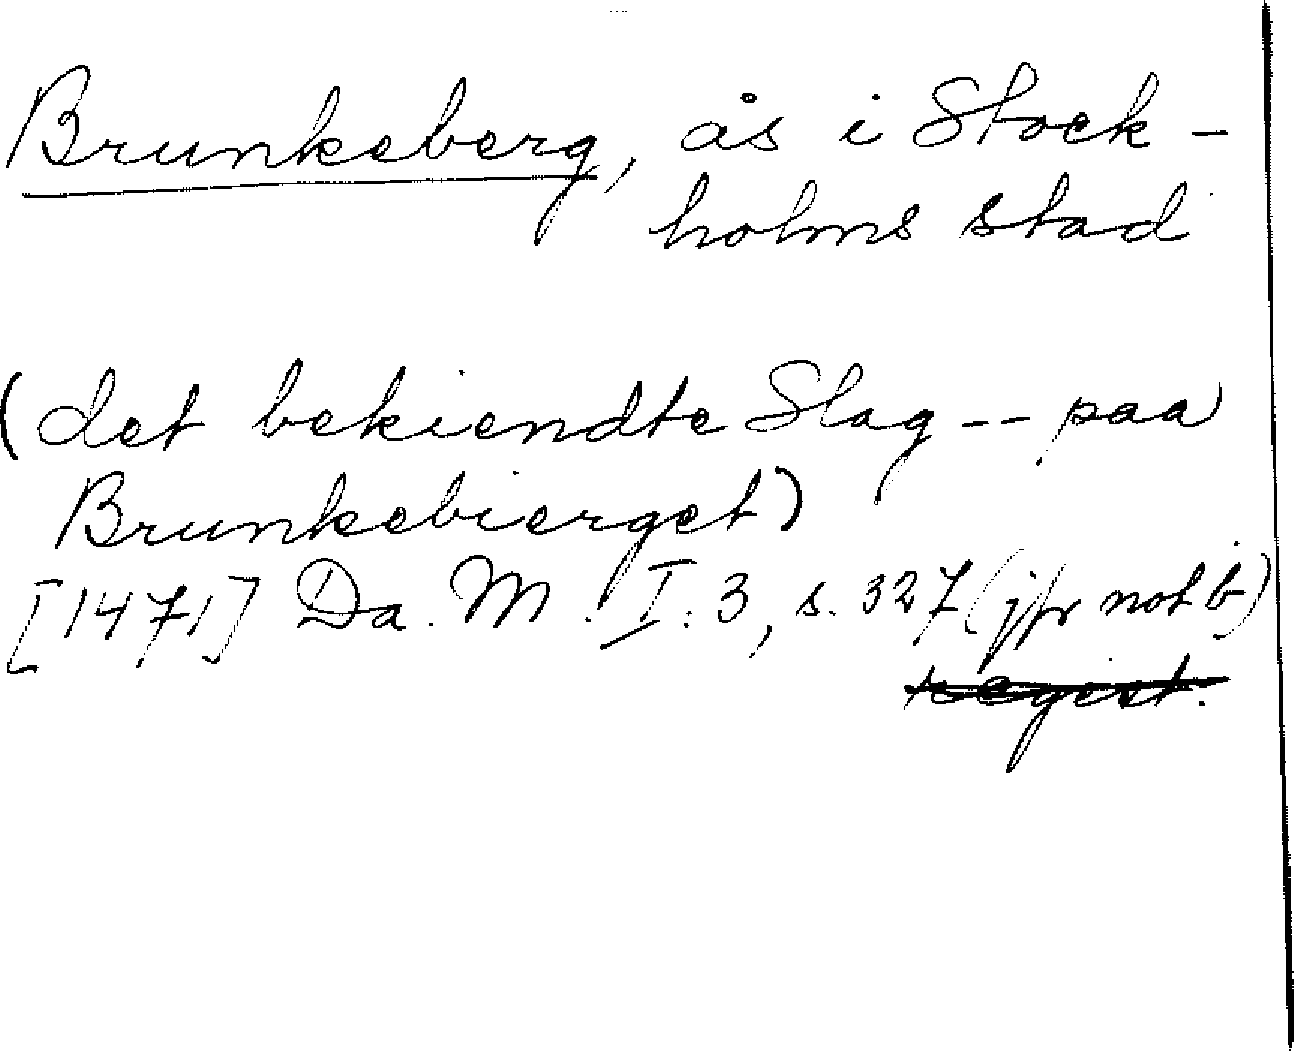 Brunkeberg, ås i Stock-
holms stad
(det bekiendte Slag -- paa
Brunkebierget)
[1471] Da. M. I: 3, s. 327 (jfr not b)
regist.